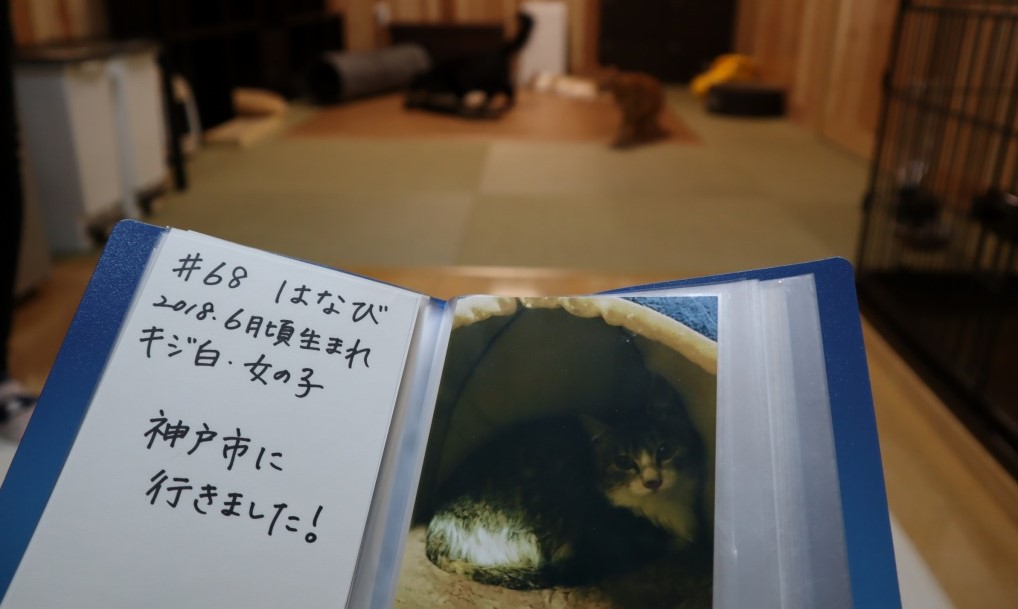 #68 はなび
2018.6月頃生まれ
キジ白・女の子
神戸市に
行きました!